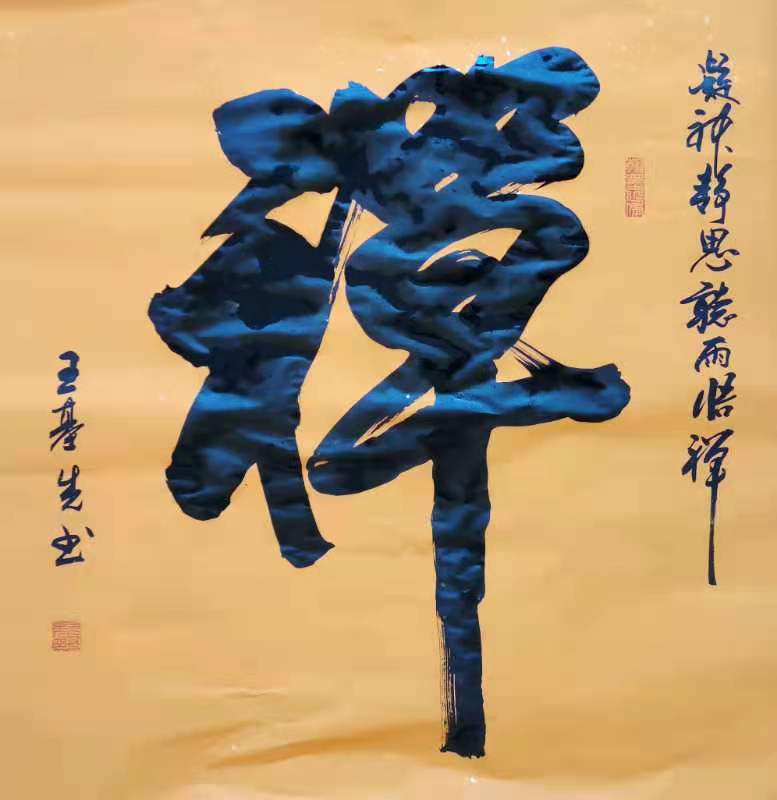 凝神静思聽雨悟禪
禪
王基先书